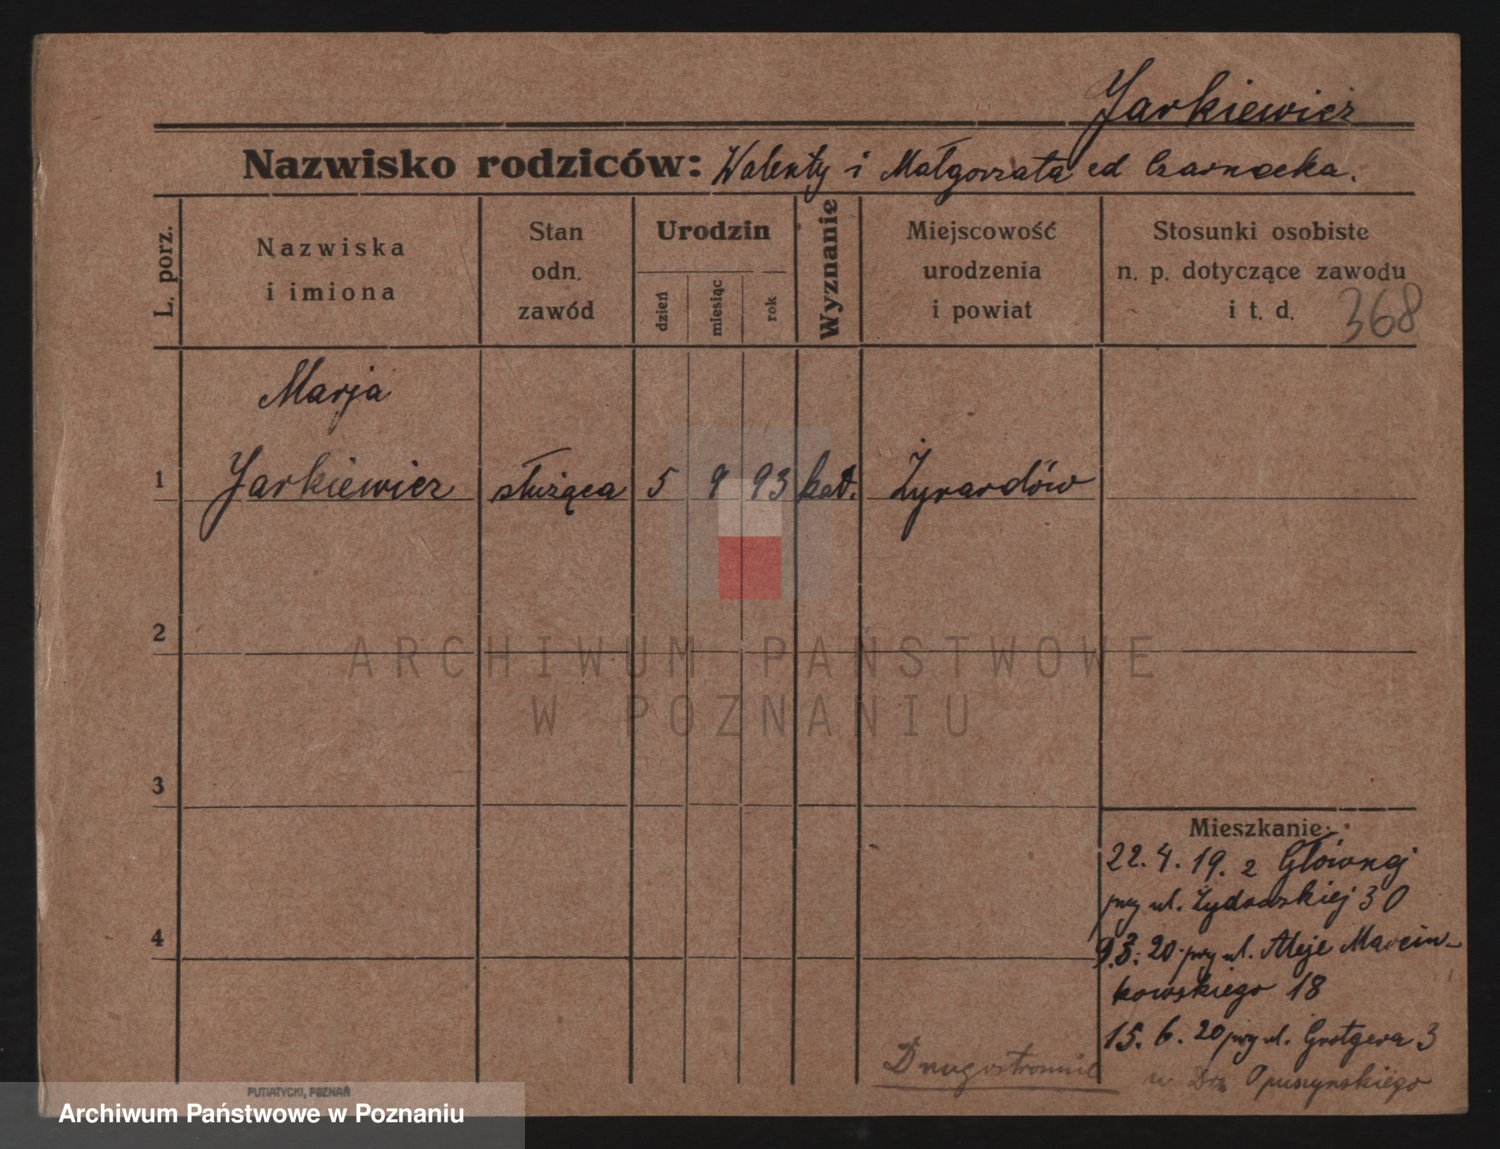 Jarkiewicz
Nazwisko rodziców: Walenty i Małgorzata ed Czarnocka.
L. porz.
Nazwiska
i imiona
Stan
odn.
zawód
Urodzin
dzień
miesiąc
rok
Wyznanie
Miejscowość
urodzenia
i powiat
Stosunki osobiste
n. p. dotyczące zawodu
i t. d.
368
Marja
1 Jarkiewicz służąca 5 9 93 kat. Żyrardów
2
3
4
Mieszkanie:
22.4.19. z Głównej
przy ul. Żydowskiej 30
9.3.20 przy ul. Aleje Marcin-
kowskiego 18
15.6.20 przy ul. Grotgera 3
u Opuszynskiego
Drugostronnie
PUTIATYCKI, POZNAŃ
ARCHIWUM PAŃSTWOWE
W POZNANIU
Archiwum Państwowe w Poznaniu